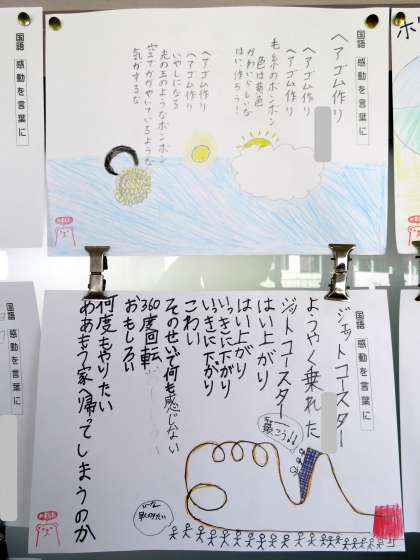 国語 感動を言葉に
国語 感動を言葉に
ヘアゴム作り
ヘアゴム作り
ヘアゴム作り
毛糸のポンポン
色は黄色
かわいらしいな
はい、作ろう!
ヘアゴム作り
いやしになる
光の玉のようなポンポン
空でかがやいているような
気がするな
ホ
国語 感動を言葉に
国語 感動を言葉に
ジェットコースター
ようやく乗れた
ジェットコースター
はい上がり
はい上がり
いっきに下がり
いっきに下がり
こわい
そのせいで何も感じない
360度回転
おもしろい
何度もやりたい
ああもう家に帰ってしまうのか